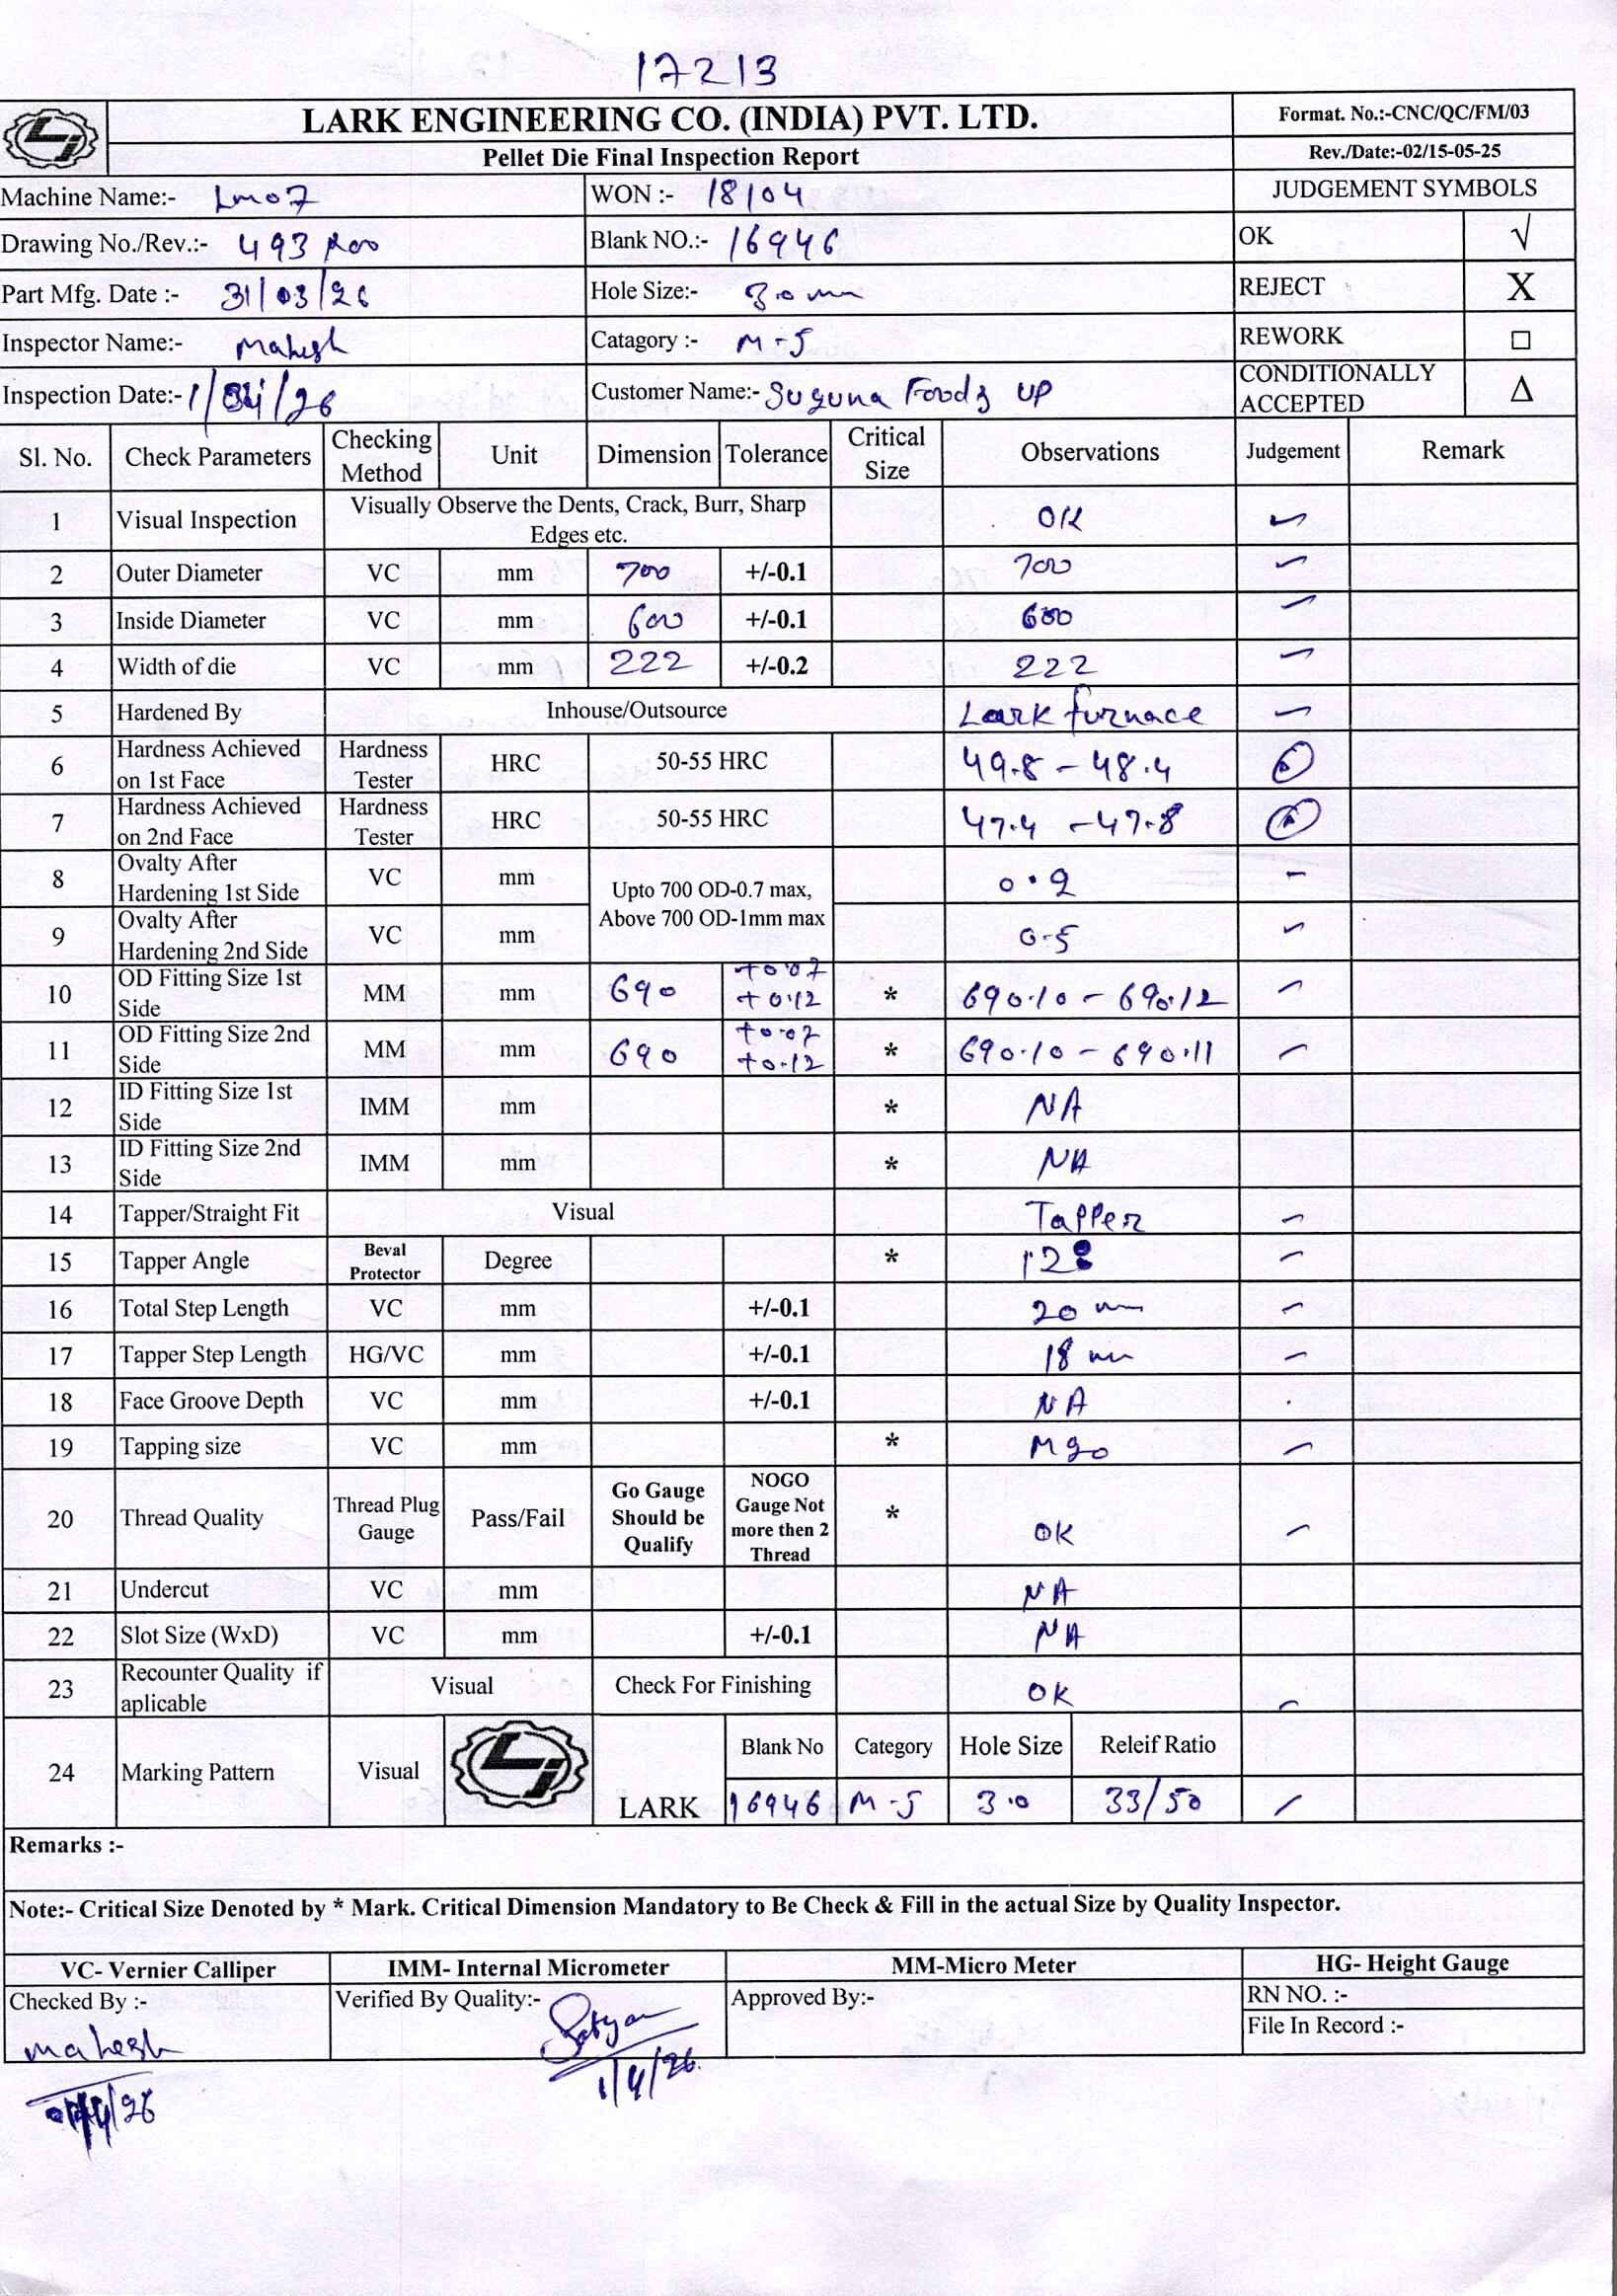 17213
LARK ENGINEERING CO. (INDIA) PVT. LTD.
Format. No.:-CNC/QC/FM/03
Pellet Die Final Inspection Report
Rev./Date:-02/15-05-25
Machine Name:- Lm07 WON :- 18104 JUDGEMENT SYMBOLS
Drawing No./Rev.:- 493 R00 Blank NO.:- 16946 OK √
Part Mfg. Date :- 31/03/26 Hole Size:- 3.0 mm REJECT X
Inspector Name:- Mahesh Catagory :- M-5 REWORK □
Inspection Date:- 1/04/26 Customer Name:- Suguna Foods UP CONDITIONALLY ACCEPTED Δ
Sl. No. Check Parameters Checking Method Unit Dimension Tolerance Critical Size Observations Judgement Remark
1 Visual Inspection Visually Observe the Dents, Crack, Burr, Sharp Edges etc. OK
2 Outer Diameter VC mm 700 +/-0.1 700
3 Inside Diameter VC mm 600 +/-0.1 600
4 Width of die VC mm 222 +/-0.2 222
5 Hardened By Inhouse/Outsource Lark furnace
6 Hardness Achieved on 1st Face Hardness Tester HRC 50-55 HRC 49.8 - 48.4
7 Hardness Achieved on 2nd Face Hardness Tester HRC 50-55 HRC 47.4 - 47.8
8 Ovalty After Hardening 1st Side VC mm Upto 700 OD-0.7 max, Above 700 OD-1mm max
9 Ovalty After Hardening 2nd Side VC mm 0.5
10 OD Fitting Size 1st Side MM mm 690 +0.07 +0.12 * 690.10 - 690.12
11 OD Fitting Size 2nd Side MM mm 690 +0.07 +0.12 * 690.10 - 690.11
12 ID Fitting Size 1st Side IMM mm * NA
13 ID Fitting Size 2nd Side IMM mm * NA
14 Tapper/Straight Fit Visual Tapper
15 Tapper Angle Beval Protector Degree *
16 Total Step Length VC mm +/-0.1 20 mm
17 Tapper Step Length HG/VC mm +/-0.1 18 mm
18 Face Groove Depth VC mm +/-0.1 NA
19 Tapping size VC mm * M20
20 Thread Quality Thread Plug Gauge Pass/Fail Go Gauge Should be Qualify NOGO Gauge Not more then 2 Thread * OK
21 Undercut VC mm NA
22 Slot Size (WxD) VC mm +/-0.1 NA
23 Recounter Quality if aplicable Visual Check For Finishing OK
24 Marking Pattern Visual LARK Blank No Category Hole Size Releif Ratio
16946 M-5 3.0 33/50
Remarks :-
Note:- Critical Size Denoted by * Mark. Critical Dimension Mandatory to Be Check & Fill in the actual Size by Quality Inspector.
VC- Vernier Calliper IMM- Internal Micrometer MM-Micro Meter HG- Height Gauge
Checked By :- Verified By Quality:- Approved By:- RN NO. :-
File In Record :-
mahesh Satyam
1/4/26